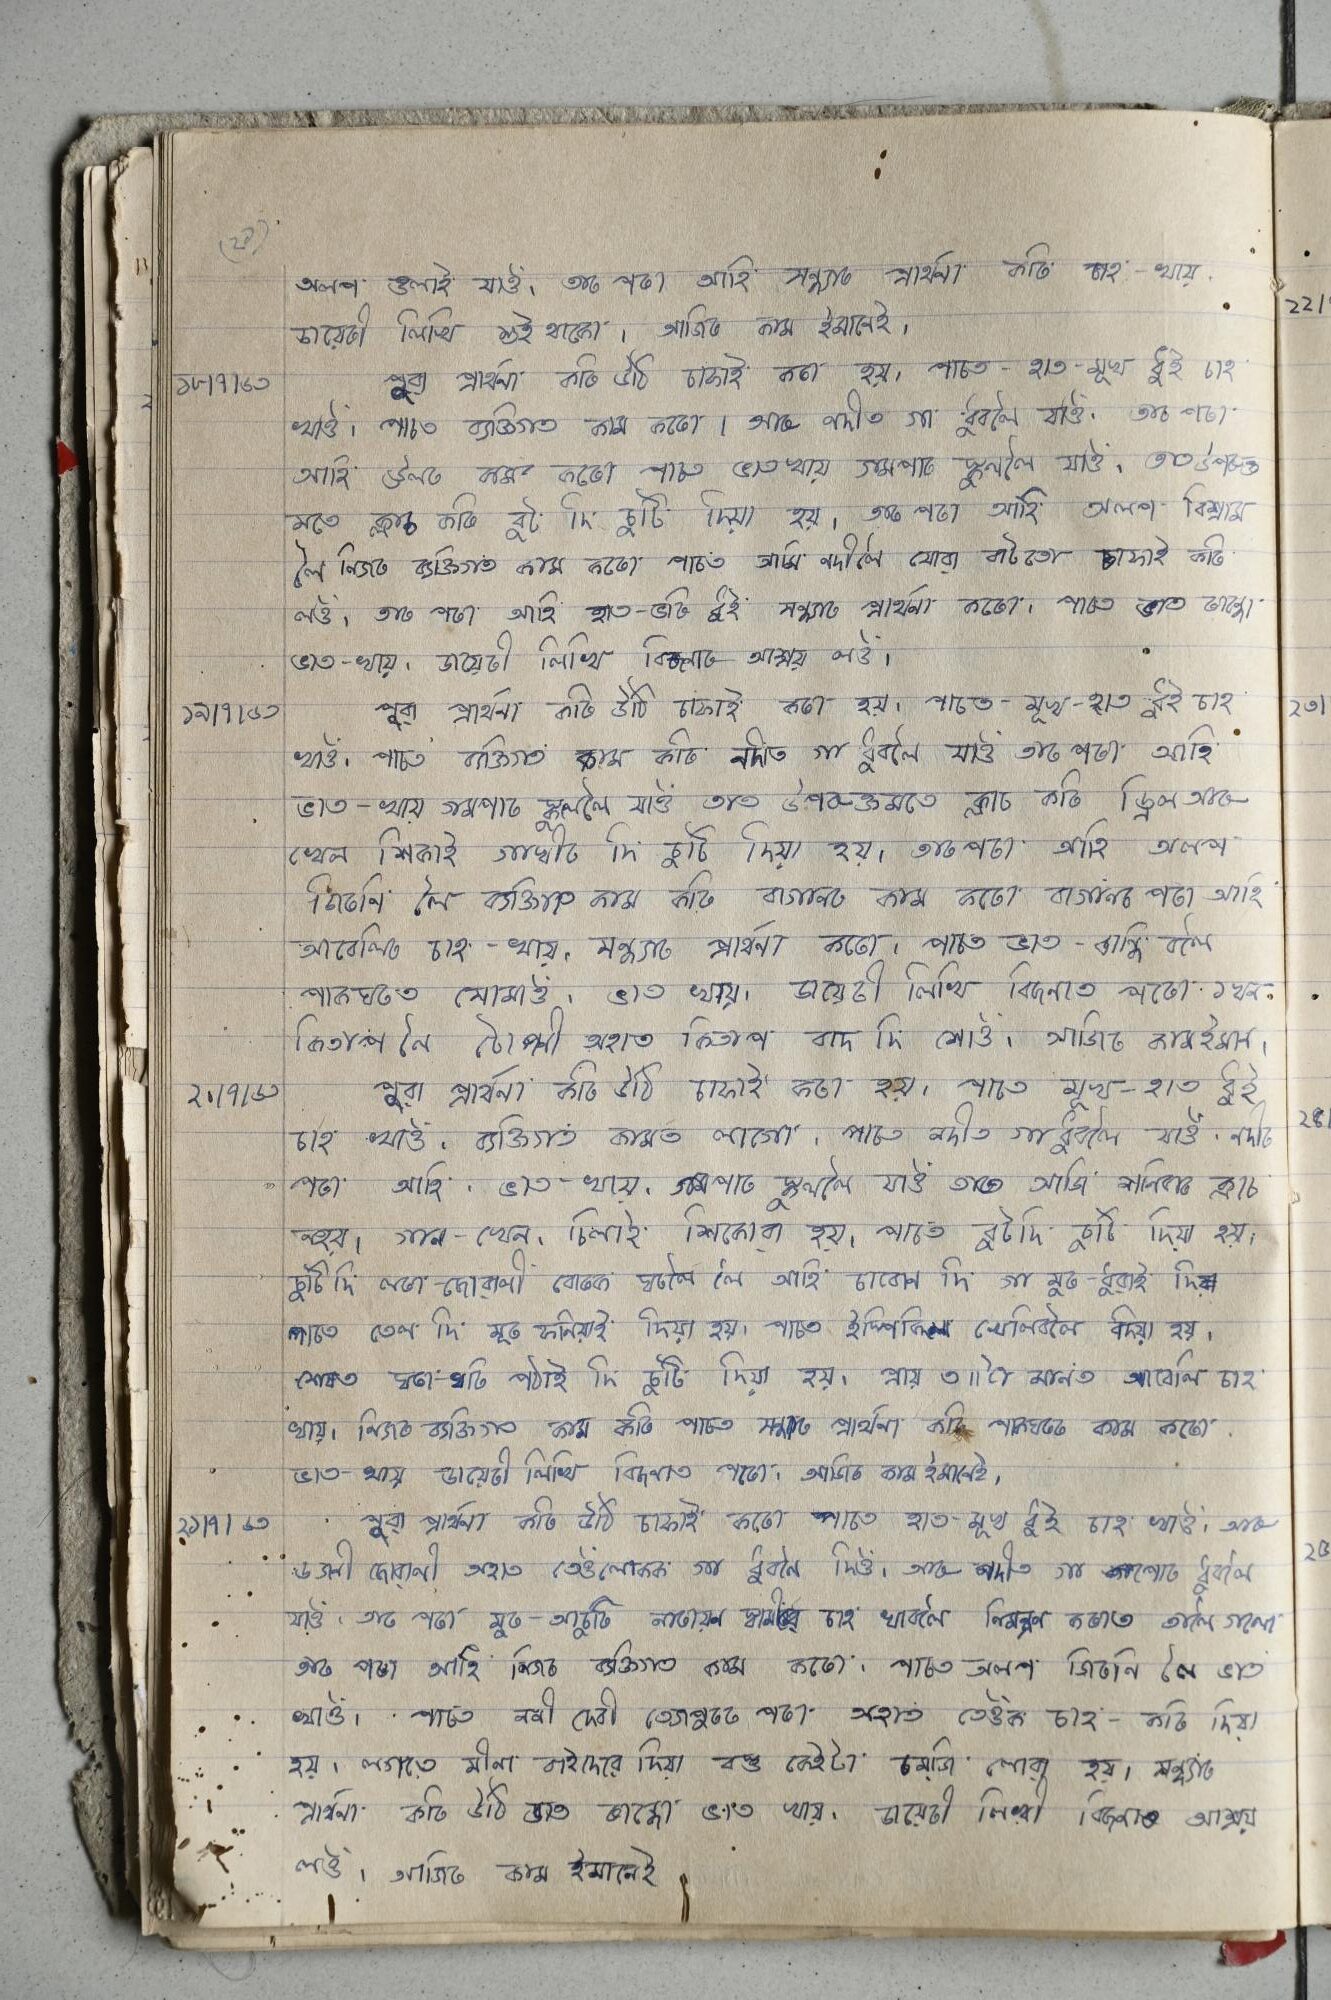 (২৫)
অলপ ওলাই যাওঁ, তাৰ পৰা আহি সন্ধ্যাত প্ৰাৰ্থনা কৰি চাহ খায়.
ডায়েৰী লিখি শুই থাকো, আজিৰ কাম ইমানেই,
১৮/৭/৬৩ পুৱা প্ৰাৰ্থনা কৰি উঠি চাফাই কৰা হয়, পাচত - হাত-মূখ ধুই চাহ
খাওঁ, পাচত ব্যক্তিগত কাম কৰো, আৰু নদীত গা ধুবলৈ যাওঁ, তাৰ পৰা
আহি কাম কৰো পাচত ভাত খায় গমপাৰ স্কুললৈ যাওঁ, তাত উপৰুক্ত
মতে ক্লাচ কৰি বুট দি ছুটি দিয়া হয়, তাৰ পৰা আহি অলপ বিশ্ৰাম
লৈ নিজৰ ব্যক্তিগত কাম কৰো পাচত আমি নদীলৈ যোৱা বাটতো চাফাই কৰি
লওঁ, তাৰ পৰা আহি হাত-ভৰি ধুই সন্ধ্যাত প্ৰাৰ্থনা কৰো, পাচত ভাত ৰান্ধো
ভাত-খায়, ডায়েৰী লিখি বিচনাত আশ্ৰয় লওঁ,
১৯/৭/৬৩ পুৱা প্ৰাৰ্থনা কৰি উঠি চাফাই কৰা হয়, পাচত-মূখ-হাত ধুই চাহ
খাওঁ, পাচত ব্যক্তিগত কাম কৰি নদীত গা ধুবলৈ যাওঁ তাৰ পৰা আহি
ভাত-খায় গমপাৰ স্কুললৈ যাওঁ তাত উপৰুক্তমতে ক্লাচ কৰি ড্ৰিল আৰু
খেল শিকাই গাখীৰ দি ছুটি দিয়া হয়, তাৰ পৰা আহি অলপ
জিৰনি লৈ ব্যক্তিগত কাম কৰি বাগানত কাম কৰো বাগানৰ পৰা আহি
আবেলিৰ চাহ-খায়, সন্ধ্যাত প্ৰাৰ্থনা কৰো, পাচত ভাত-ৰান্ধি বলৈ
পাকঘৰত সোমাওঁ, ভাত খায়, ডায়েৰী লিখি বিচনাত পৰো এখন
কিতাপ লৈ অহাত কিতাপ বাদ দি শোওঁ, আজিৰ কাম ইমান,
২০/৭/৬৩ পুৱা প্ৰাৰ্থনা কৰি উঠি চাফাই কৰা হয়, পাচত মূখ-হাত ধুই
চাহ খাওঁ, ব্যক্তিগত কামত লাগো, পাচত নদীত গা ধুবলৈ যাওঁ, নদীৰ
পৰা আহি, ভাত-খায়, গমপাৰ স্কুললৈ যাওঁ তাত আজি শনিবাৰ ক্লাচ
নহয়, গান-খেল, চিলাই শিকোৱা হয়, পাচত বুট দি ছুটি দিয়া হয়,
ছুটি দি লৰা-ছোৱালী বোৰক ঘৰলৈ লৈ আহি চাবোন দি গা মূৰ-ধুৱাই দিয়া
পাচত তেল দি মূৰ ফনিয়াই দিয়া হয়, পাচত খেলিবলৈ দিয়া হয়,
শেষত ঘৰা-ঘৰি পঠাই দি ছুটি দিয়া হয়, প্ৰায় ৩॥টা মানত আবেলি চাহ
খায়, নিজৰ ব্যক্তিগত কাম কৰি পাচত সন্ধ্যাত প্ৰাৰ্থনা কৰি পাকঘৰত কাম কৰো
ভাত-খায় ডায়েৰী লিখি বিচনাত পৰো, আজিৰ কাম ইমানেই,
২১/৭/৬৩ পুৱা প্ৰাৰ্থনা কৰি উঠি চাফাই কৰো পাচত হাত-মূখ ধুই চাহ খাওঁ, আৰু
ছোৱালী অহাত তেওঁলোকক গা ধুবলৈ দিওঁ, আৰু নদীত গা কাপোৰ ধুবলৈ
যাওঁ, তাৰ পৰা মূৰ-আচুৰি নাৰায়ন চাহ খাবলৈ নিমন্ত্ৰন কৰাত তালৈ গলো
তাৰ পৰা আহি নিজৰ ব্যক্তিগত কাম কৰো, পাচত অলপ জিৰনি লৈ ভাত
খাওঁ, পাচত দেৱী তেজপুৰৰ পৰা অহাত তেওঁক চাহ-কৰি দিয়া
হয়, লগতে মীনা বাইদেৱে দিয়া বস্তু কেইটা চমজি লোৱা হয়, সন্ধ্যাত
প্ৰাৰ্থনা কৰি উঠি ভাত ৰান্ধো ভাত খায়, ডায়েৰী লিখি বিচনাত আশ্ৰয়
লওঁ, আজিৰ কাম ইমানেই